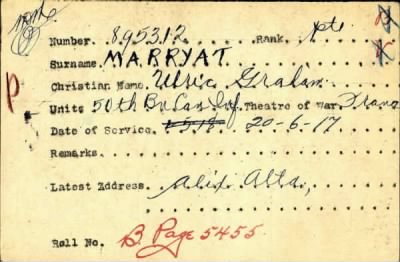 Number. 895312 Rank. Pte
Surname. MARRYAT
Christian Name. Ulric Graham
Unit. 50th Bn Can Inf. Theatre of War. Franc
Date of Service. 20-6-17
Remarks.
Latest Address. Alix Alta,
Roll No. B. Page 5455